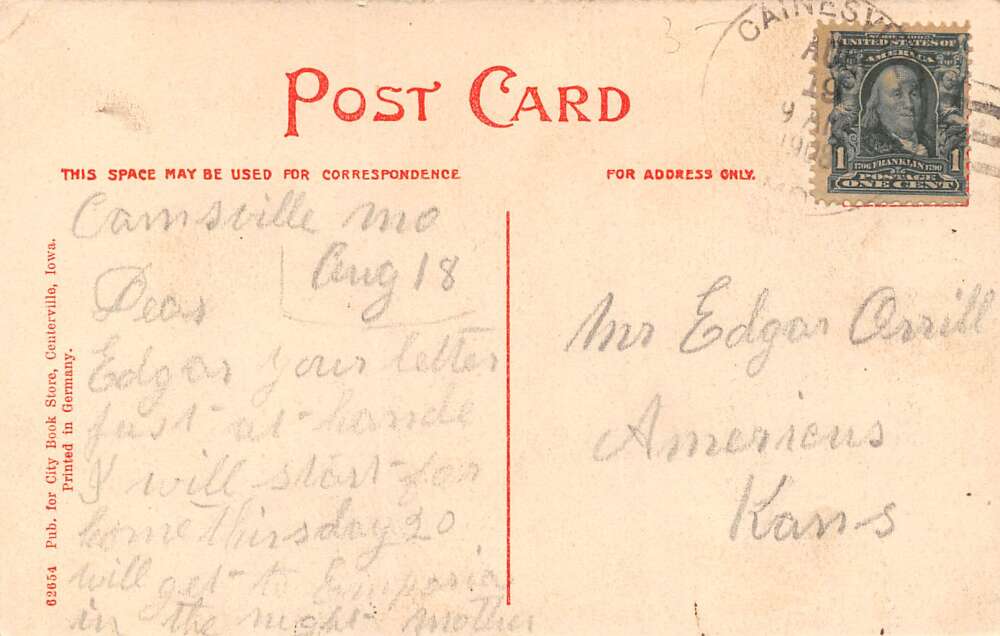 POST CARD
THIS SPACE MAY BE USED FOR CORRESPONDENCE
FOR ADDRESS ONLY.
CAINESV
AU
19
9 A
1908
SERIES 1902
UNITED STATES OF
AMERICA
1 1706 FRANKLIN 1790 1
POSTAGE
ONE CENT
62654 Pub. for City Book Store, Centerville, Iowa.
Printed in Germany.
Cainsville Mo
Aug 18
Dear
Edgar your letter
just at hande
I will start for
home Thirsday 20
will get to Emporia
in the night mother
Mr Edgar Orrill
Americus
Kans
3